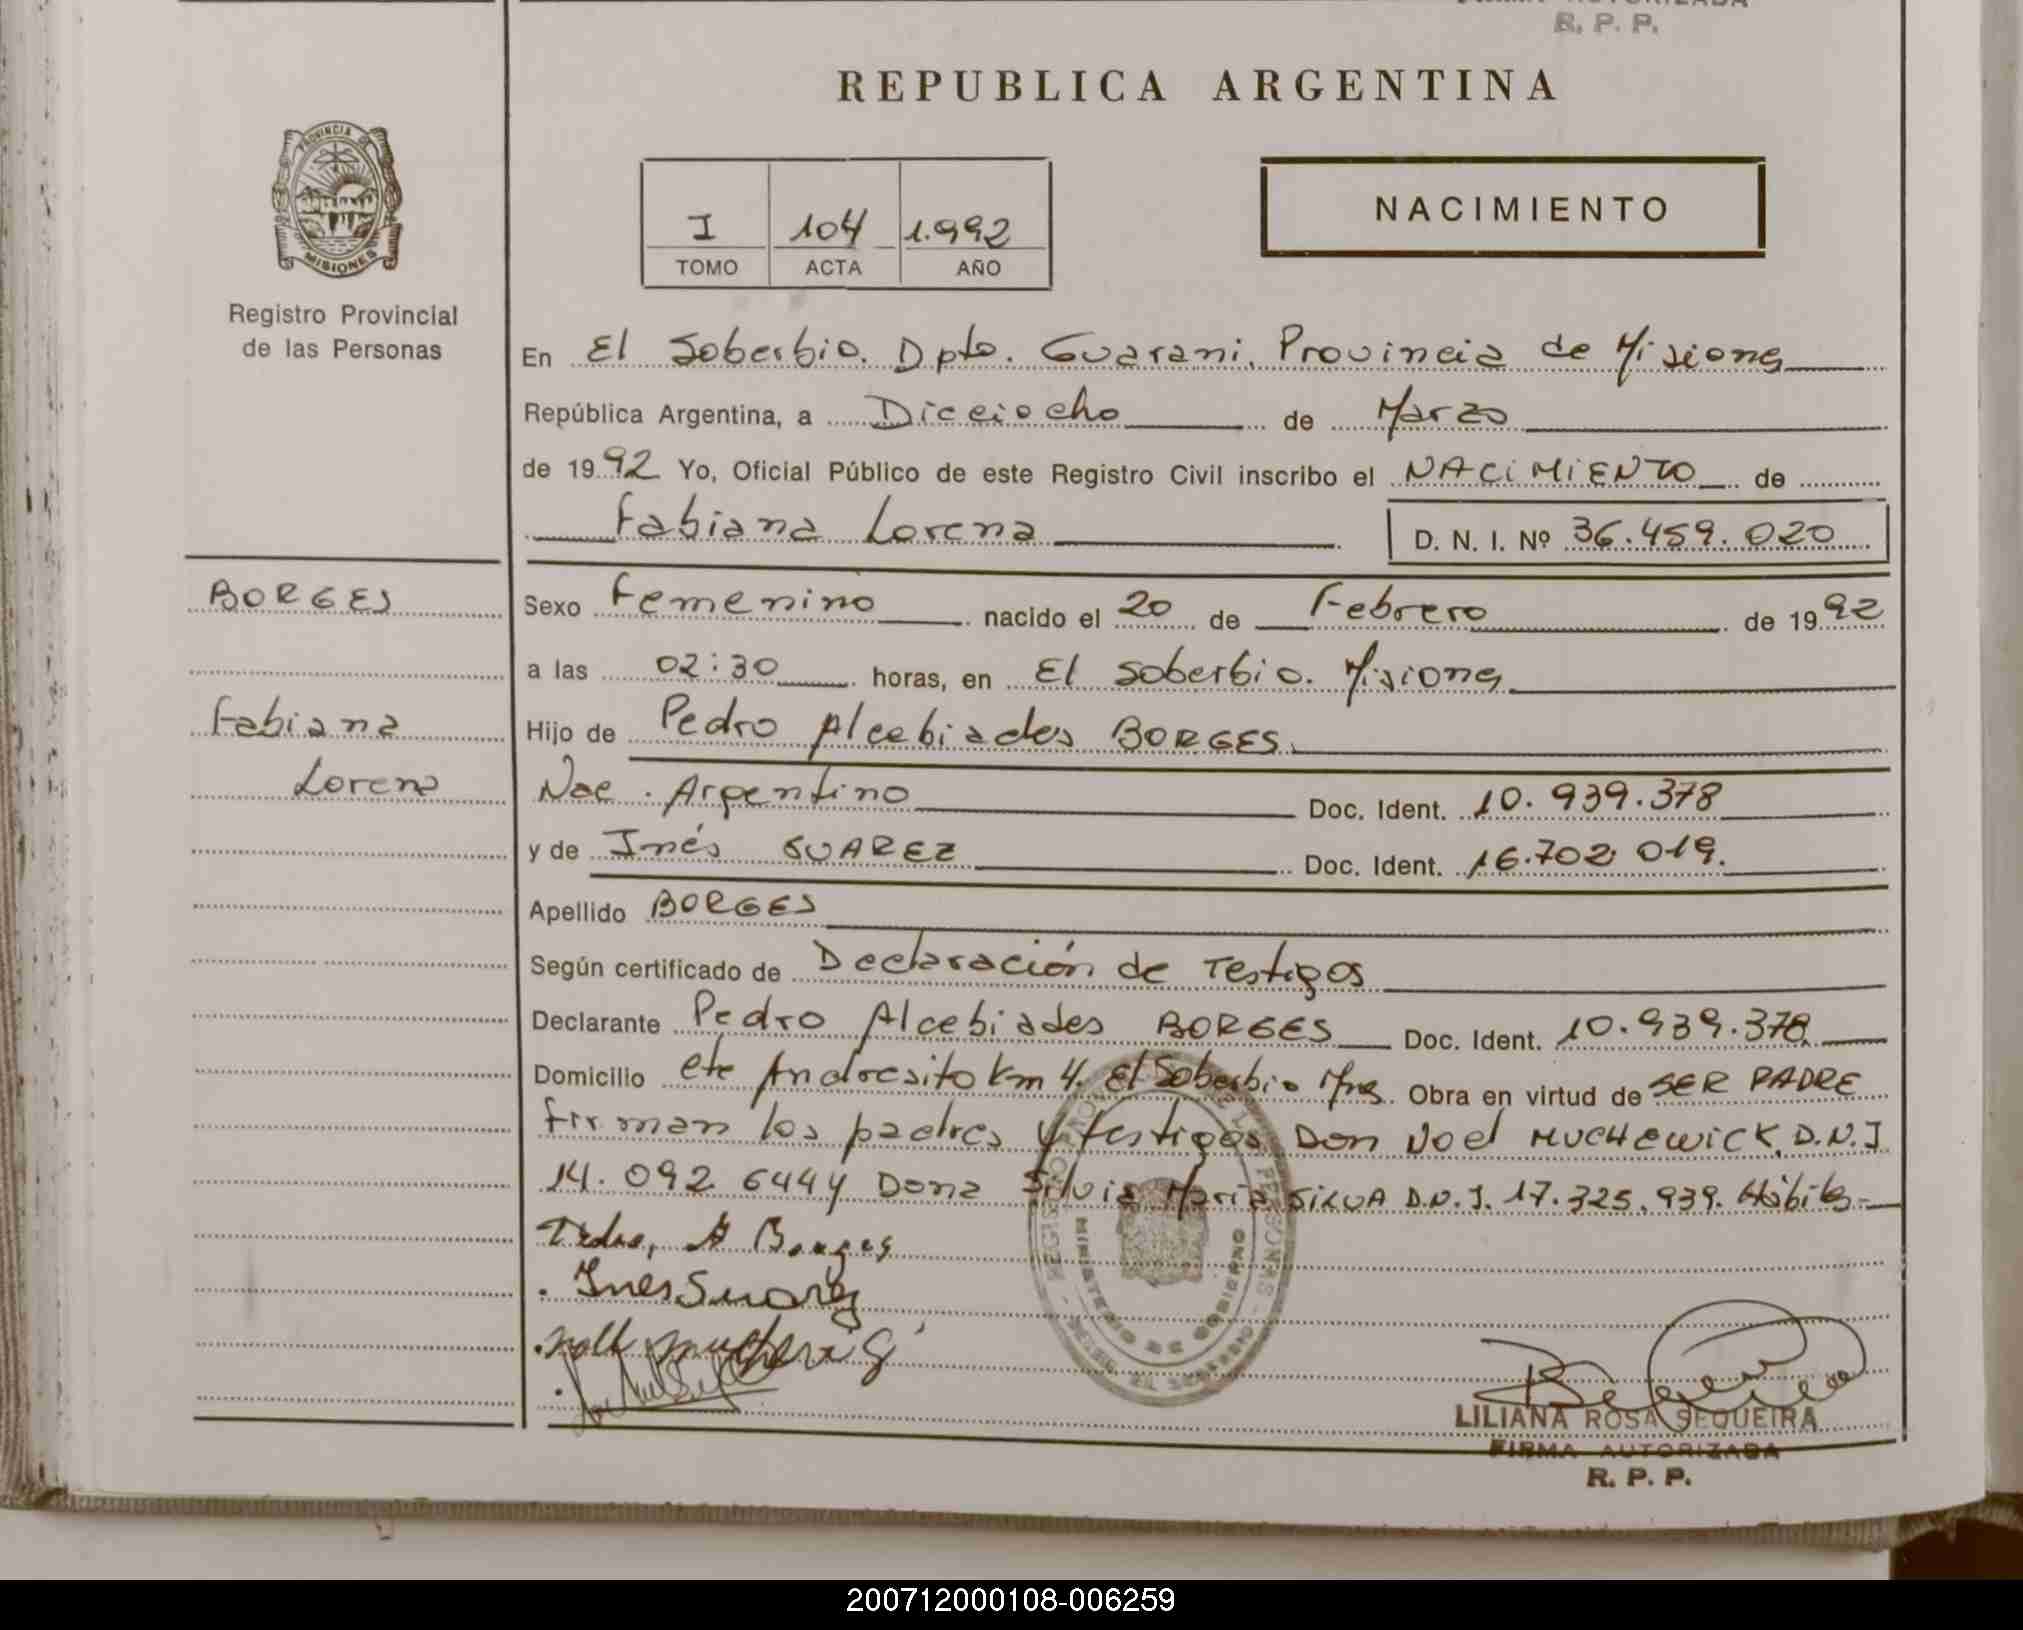 R. P. P.
REPUBLICA ARGENTINA
PROVINCIA DE
MISIONES
Registro Provincial
de las Personas
I 104 1.992
TOMO ACTA AÑO
NACIMIENTO
En El Soberbio. Dpto. Guarani. Provincia de Misiones
República Argentina, a Dieciocho de Marzo
de 1992 Yo, Oficial Público de este Registro Civil inscribo el NACIMIENTO de
Fabiana Lorena D. N. I. Nº 36.459.020
BORGES
Fabiana
Lorena
Sexo Femenino nacido el 20 de Febrero de 1992
a las 02:30 horas, en El Soberbio. Misiones
Hijo de Pedro Alcebiades BORGES.
Nac. Argentino Doc. Ident. 10.939.378
y de Inés SUAREZ Doc. Ident. 16.702 019.
Apellido BORGES
Según certificado de Declaración de Testigos
Declarante Pedro Alcebiades BORGES Doc. Ident. 10.939.378.
Domicilio cte Andresito Km 4. El Soberbio Mnes. Obra en virtud de SER PADRE
Firman los padres y testigos Don Noel MUCHEWICK, D.N.I
14. 092 644 y Dona Silvia Maria SILVA D.N.I. 17.325.939. Hábiles
Pedro, A Borges
Ines Suarez
MINISTERIO DE GOBIERNO
LILIANA ROSA SEQUEIRA
FIRMA AUTORIZADA
R. P. P.
200712000108-006259